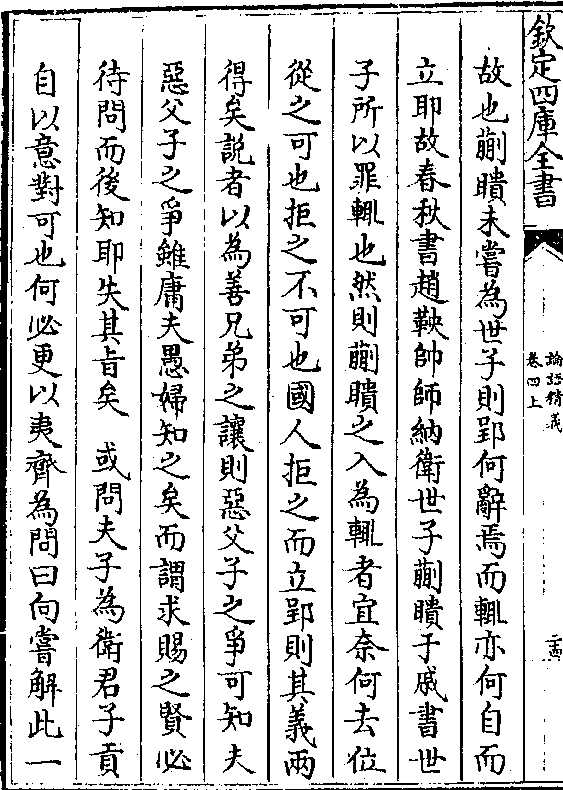 欽定四庫全書
論語精義
卷四上
故也蒯聵未嘗為世子則郢何辭焉而輒亦何自而
立耶故春秋書趙鞅帥師納衛世子蒯聵于戚書世
子所以罪輒也然則蒯聵之入為輒者宜奈何去位
從之可也拒之不可也國人拒之而立郢則其義兩
得矣説者以為善兄弟之讓則惡父子之爭可知夫
惡父子之爭雖庸夫愚婦知之矣而謂求賜之賢必
待問而後知耶失其㫖矣　或問夫子為衛君子貢
自以意對可也何必更以夷齊為問曰向嘗解此一